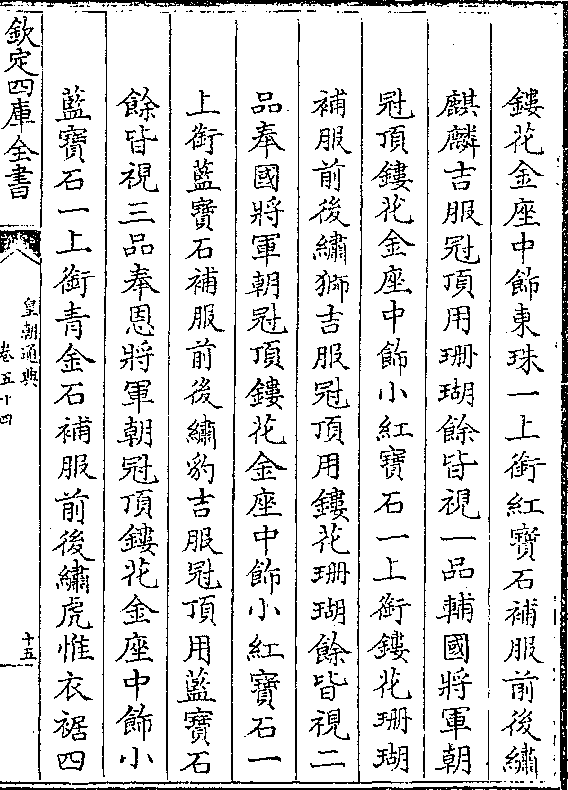 鏤花金座中飾東珠一上銜紅寶石補服前後繡
麒麟吉服冠頂用珊瑚餘皆視一品輔國將軍朝
冠頂鏤花金座中飾小紅寶石一上銜鏤花珊瑚
補服前後繡獅吉服冠頂用鏤花珊瑚餘皆視二
品奉國將軍朝冠頂鏤花金座中飾小紅寶石一
上銜藍寶石補服前後繡豹吉服冠頂用藍寶石
餘皆視三品奉恩將軍朝冠頂鏤花金座中飾小
藍寶石一上銜青金石補服前後繡虎惟衣裾四
欽定四庫全書
皇朝通典
卷五十四
十五